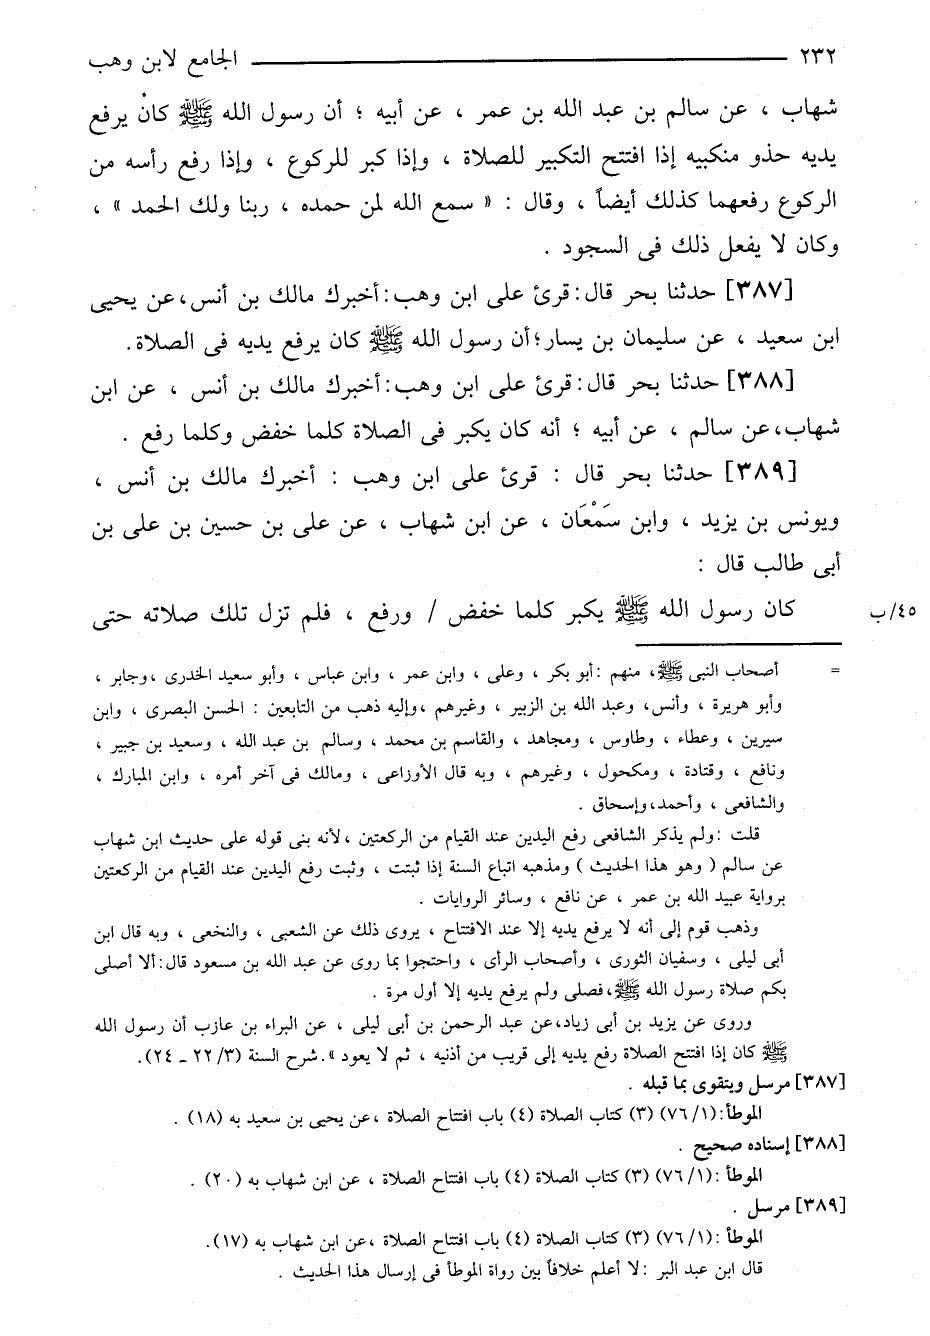 ٢٣٢ الجامع لابن وهب
شهاب ، عن سالم بن عبد الله بن عمر ، عن أبيه ؛ أن رسول الله ﷺ كان يرفع
يديه حذو منكبيه إذا افتتح التكبير للصلاة ، وإذا كبر للركوع ، وإذا رفع رأسه من
الركوع رفعهما كذلك أيضاً ، وقال : « سمع الله لمن حمده ، ربنا ولك الحمد » ،
وكان لا يفعل ذلك فى السجود .
[٣٨٧] حدثنا بحر قال : قرئ على ابن وهب : أخبرك مالك بن أنس ، عن يحيى
ابن سعيد ، عن سليمان بن يسار ؛ أن رسول الله ﷺ كان يرفع يديه فى الصلاة .
[٣٨٨] حدثنا بحر قال : قرئ على ابن وهب : أخبرك مالك بن أنس ، عن ابن
شهاب ، عن سالم ، عن أبيه ؛ أنه كان يكبر فى الصلاة كلما خفض وكلما رفع .
[٣٨٩] حدثنا بحر قال : قرئ على ابن وهب : أخبرك مالك بن أنس ،
ويونس بن يزيد ، وابن سَمْعَان ، عن ابن شهاب ، عن على بن حسين بن على بن
أبى طالب قال :
كان رسول الله ﷺ يكبر كلما خفض / ورفع ، فلم تزل تلك صلاته حتى
٤٥/ب
= أصحاب النبى ﷺ ، منهم : أبو بكر ، وعلى ، وابن عمر ، وابن عباس ، وأبو سعيد الخدرى ، وجابر ،
وأبو هريرة ، وأنس ، وعبد الله بن الزبير ، وغيرهم ، وإليه ذهب من التابعين : الحسن البصرى ، وابن
سيرين ، وعطاء ، وطاوس ، ومجاهد ، والقاسم بن محمد ، وسالم بن عبد الله ، وسعيد بن جبير ،
ونافع ، وقتادة ، ومكحول ، وغيرهم ، وبه قال الأوزاعى ، ومالك فى آخر أمره ، وابن المبارك ،
والشافعى ، وأحمد ، وإسحاق .
قلت : ولم يذكر الشافعى رفع اليدين عند القيام من الركعتين ، لأنه بنى قوله على حديث ابن شهاب
عن سالم ( وهو هذا الحديث ) ومذهبه اتباع السنة إذا ثبتت ، وثبت رفع اليدين عند القيام من الركعتين
برواية عبيد الله بن عمر ، عن نافع ، وسائر الروايات .
وذهب قوم إلى أنه لا يرفع يديه إلا عند الافتتاح ، يروى ذلك عن الشعبى ، والنخعى ، وبه قال ابن
أبى ليلى ، وسفيان الثورى ، وأصحاب الرأى ، واحتجوا بما روى عن عبد الله بن مسعود قال : ألا أصلى
بكم صلاة رسول الله ﷺ ، فصلى ولم يرفع يديه إلا أول مرة .
وروى عن يزيد بن أبى زياد ، عن عبد الرحمن بن أبى ليلى ، عن البراء بن عازب أن رسول الله
ﷺ كان إذا افتتح الصلاة رفع يديه إلى قريب من أذنيه ، ثم لا يعود » . شرح السنة (٣/ ٢٢ ـ ٢٤) .
[٣٨٧] مرسل ويتقوى بما قبله .
الموطأ : (١/ ٧٦) (٣) كتاب الصلاة (٤) باب افتتاح الصلاة ، عن يحيى بن سعيد به (١٨) .
[٣٨٨] إسناده صحيح .
الموطأ : (١/ ٧٦) (٣) كتاب الصلاة (٤) باب افتتاح الصلاة ، عن ابن شهاب به (٢٠) .
[٣٨٩] مرسل .
الموطأ : (١/ ٧٦) (٣) كتاب الصلاة (٤) باب افتتاح الصلاة ، عن ابن شهاب به (١٧) .
قال ابن عبد البر : لا أعلم خلافاً بين رواة الموطأ فى إرسال هذا الحديث .